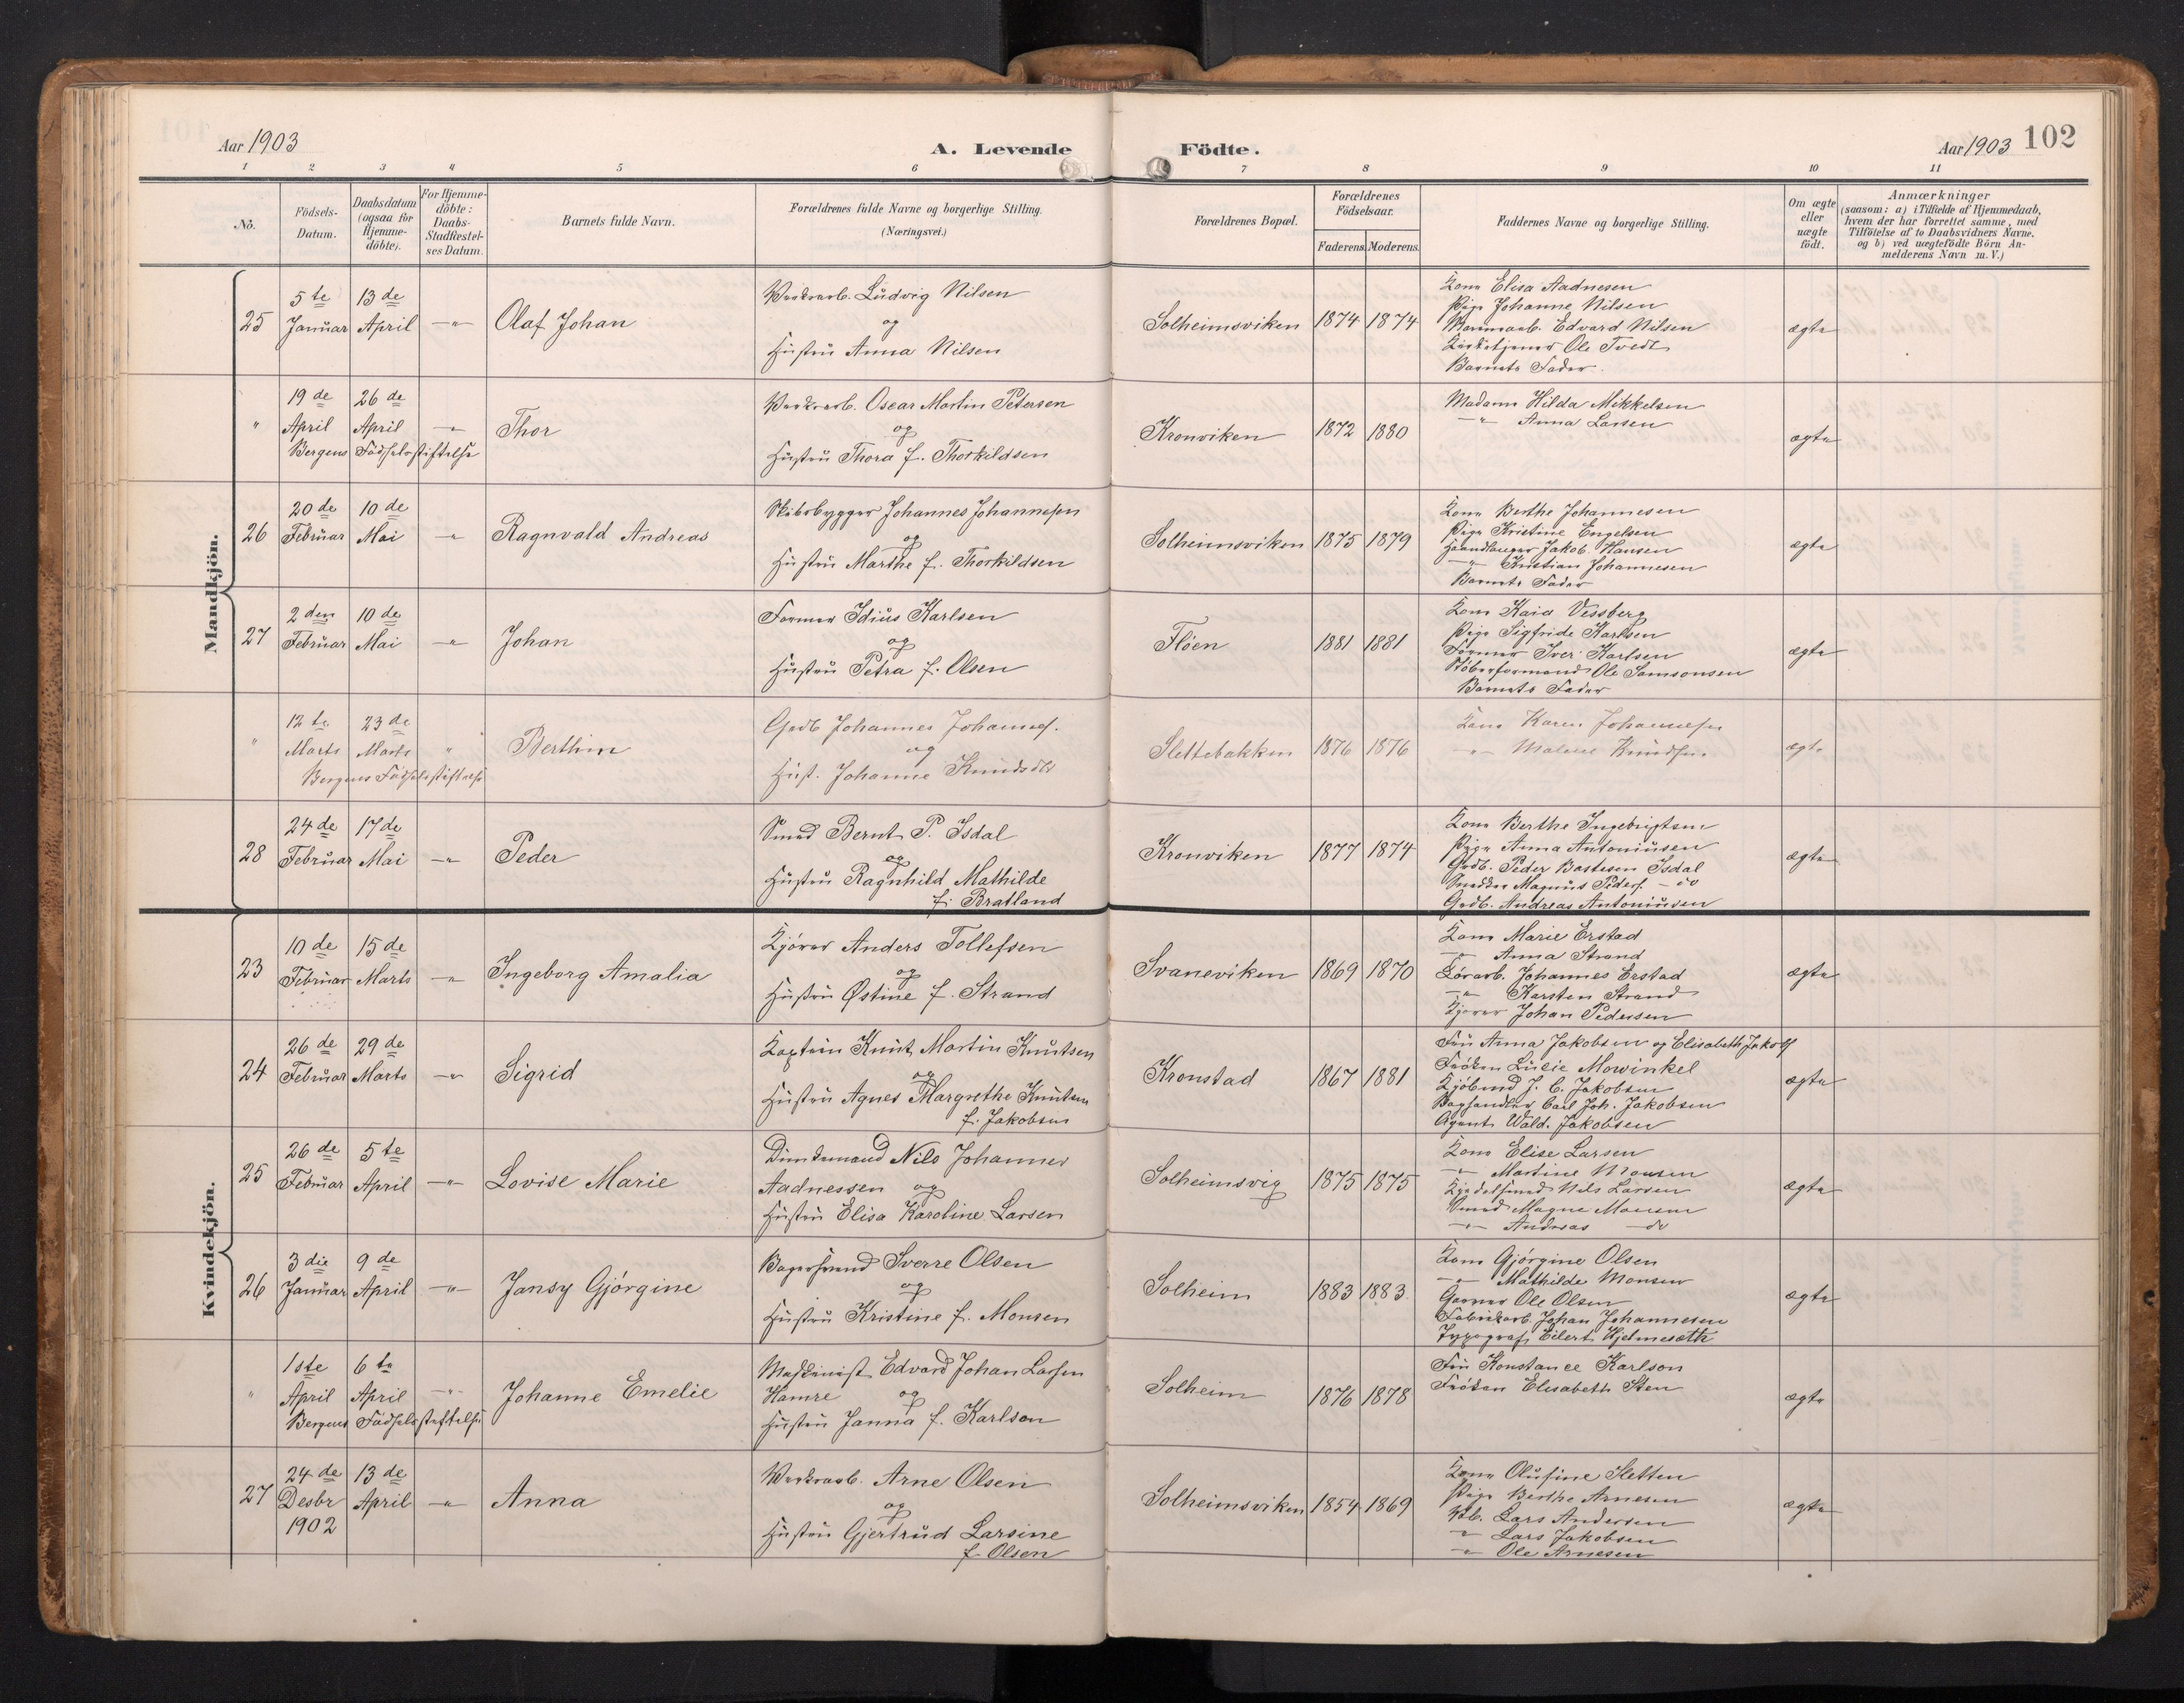 Aar 1903
A. Levende
Födte.
Aar 1903 102
1 2 3 4 5 6 7 8 9 10 11
No.
Födsels-
Datum.
Daabsdatum
(ogsaa for
Hjemme-
döbte).
For Hjemme-
döbte:
Daabs-
Stadfæstel-
ses Datum.
Barnets fulde Navn.
Forældrenes fulde Navne og borgerlige Stilling.
(Næringsvei.)
Forældrenes Bopæl.
Forældrenes
Födselsaar.
Faderens. Moderens.
Faddernes Navne og borgerlige Stilling.
Om ægte
eller
uægte
födt.
Anmærkninger
(saasom: a) i Tilfælde af Hjemmedaab,
hvem der har forrettet samme, med
Tilföielse af to Daabsvidners Navne,
og b) ved uægtefödte Börn An-
melderens Navn m. V.)
Mandkjön.
25
5te
Januar
13de
April
-"-
Olaf Johan
Værksarb. Ludvig Nilsen
og
Hustru Anna Nilsen
Solheimsviken
1874 1874
Kone Elisa Aadnesen
Pige Johanne Nilsen
Edvard Nilsen
Kirketjener Ole Tvedt
Barnets Fader.
ægte
"
19de
April
26de
April
-"-
Bergens Födselsstiftelse
Thor
Værksarb. Oscar Martin Petersen
og
Hustru Thora f. Thorkildsen
Kronviken
1872 1880
Madam Hilda Mikkelsen
-"- Anna Larsen
ægte
26
20de
Februar
10de
Mai
-"-
Ragnvald Andreas
Skibsbygger Johannes Johannesen
og
Hustru Marthe f. Thorkildsen
Solheimsviken
1875 1879
Kone Berthe Johannesen
Pige Kristine Engelsen
Haandlanger Jakob Hansen
-"- Kristian Johannesen
Barnets Fader
ægte
27
2den
Februar
10de
Mai
-"-
Johan
Former Idius Karlsen
og
Hustru Petra f. Olsen
Flöen
1881 1881
Kone Kaia Vessberg
Pige Sigfride Karlsen
Former Iver Karlsen
Støberformand Ole Samsonsen
Barnets Fader
ægte
"
12te
Marts
23de
Marts
"
Bergens Födselsstiftelse
Berthin
Gbr. Johannes Johannes.
og
Hust. Johanne Knudsdtr
Slettebakken
1876 1876
Kone Karen Johannesen
-"- Knudsen
ægte
28
24de
Februar
17de
Mai
-"-
Peder
Smed Bernt P. Isdal
og
Hustru Ragnhild Mathilde
f. Bratland
Kronviken
1877 1874
Kone Berthe Ingebrigtsen
Pige Anna Antoniusen
Gbr. Peder Bastesen Isdal
Snedker Magnus Peders. - do
Gbr. Andreas Antoniusen
ægte
Kvindekjön.
23
10de
Februar
15de
Marts
-"-
Ingeborg Amalia
Kjörer Anders Tollefsen
og
Hustru Østine f. Strand
Svaneviken
1869 1870
Kone Marie Erstad
-"- Anna Strand
Johannes Erstad
-"- Karsten Strand
Kjörer Johan Pedersen
ægte
24
26de
Februar
29de
Marts
-"-
Sigrid
Kaptein Knut Martin Knutsen
og
Hustru Agnes Margrethe Knutsen
f. Jakobsen
Kronstad
1867 1881
Fru Anna Jakobsen og Elisabeth Jakobs
Fröken Lucie Mowinkel
Kjöbmd J. C. Jakobsen
Boghandler Carl Joh. Jakobsen
Agent Wald. Jakobsen
ægte
25
26de
Februar
5te
April
-"-
Lovise Marie
Nils Johannes
Aadnessen og
Hustru Elisa Karoline Larsen
Solheimsvig
1875 1875
Kone Elise Larsen
-"- Martine Monsen
Kjedelsmed Nils Larsen
Smed Magne Monsen
-"- Andreas - do
ægte
26
3die
Januar
9de
April
-"-
Jansy Gjörgine
Bagersvend Sverre Olsen
og
Hustru Kristine f. Monsen
Solheim
1883 1883
Kone Gjörgine Olsen
-"- Mathilde Monsen
Garver Ole Olsen
Fabrikarb. Johan Johannesen
Typograf Eilert Hjelmesæth
ægte
"
1ste
April
6te
April
-"-
Bergens Födselsstiftelse
Johanne Emelie
Maskinist Edvard Johan Larsen
Hamre og
Hustru Janna f. Karlson
Solheim
1876 1878
Fru Konstance Karlson
Fröken Elisabeth Sten
ægte
27
24de
Desbr
1902
13de
April
-"-
Anna
Værksarb. Arne Olsen
og
Hustru Gjertrud Larsine
f. Olsen
Solheimsviken
1854 1869
Kone Olufine Sletten
Pige Berthe Arnesen
Lars Andersen
-"- Lars Jakobsen
-"- Ole Arnesen
ægte